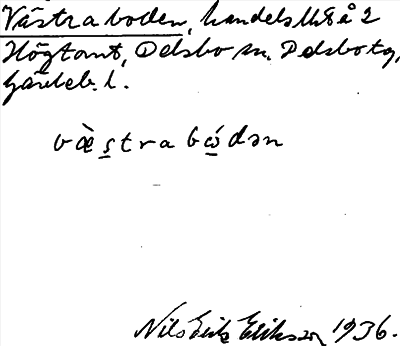 Västra boden, handelslht å 2
Högtomt, Delsbo sn. Delsbo tg,
Gävleb. l.
væ̀stra bǿdən
Nils Erik Erikson 1936.